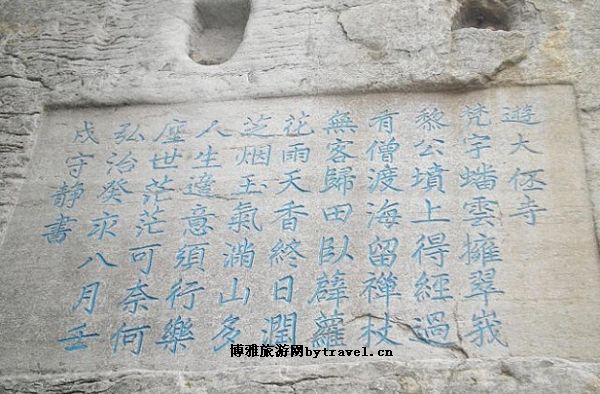 遊大伾寺
梵宇蟠雲擁翠峩
黎公墳上得經過
有僧渡海留禪杖
無客歸田臥薜蘿
花雨天香終日潤
芝烟玉氣滿山多
人生達意須行樂
塵世茫茫可奈何
弘治癸亥八月壬
戌守靜書
博雅旅游网bytravel.cn